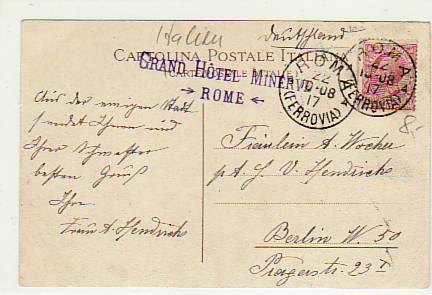 Italien
Deutschland
CARTOLINA POSTALE ITALIANA
(CARTE POSTALE ITALIENNE)
GRAND HÔTEL MINERVE
→ ROME ←
ROMA
22
10-08
17
(FERROVIA)
ROMA
22
10-08
17
(FERROVIA)
8.-
Aus der ewigen Stadt
sendet Ihnen und
Ihrer Schwester
besten Gruß
Ihre
Frau A. Hendrichs
Fräulein A. Wocher
p. A. H. V. Hendrichs
Berlin W. 50
Pragerstr. 23 I